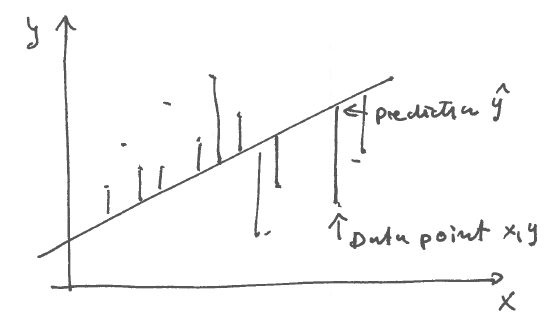 y
← prediction ŷ
↑ Data point x,y
x